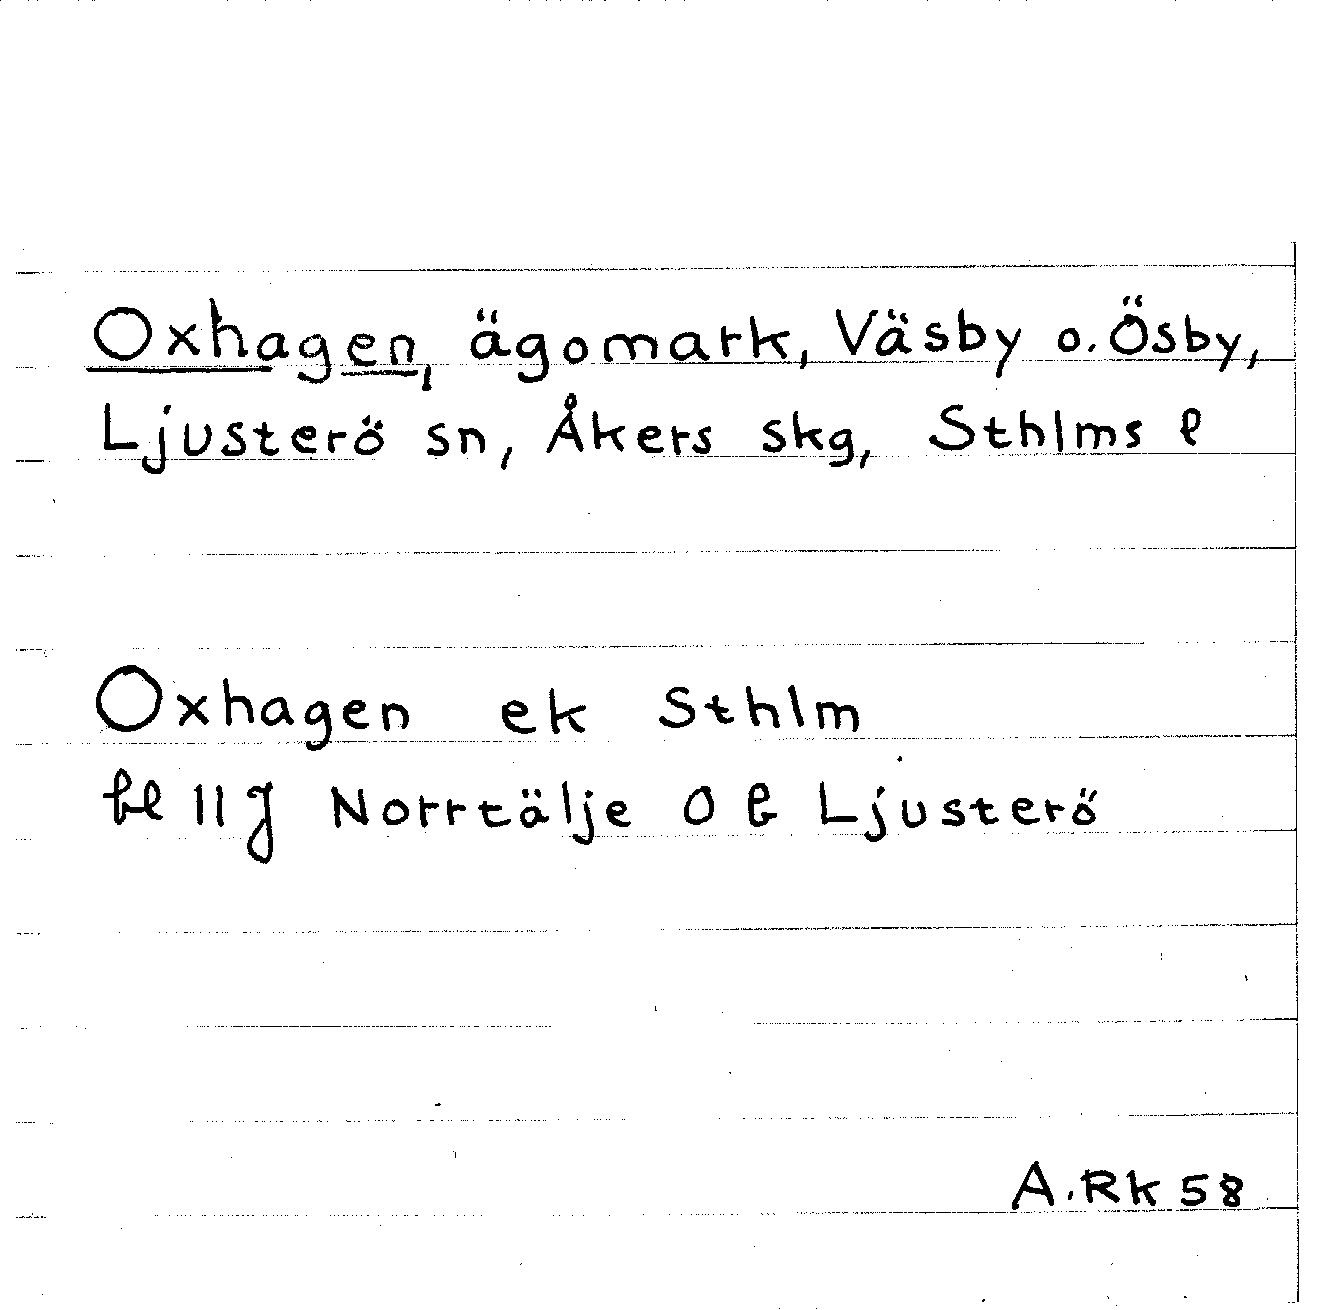 Oxhagen, ägomark, Väsby o. Ösby,
Ljusterö sn, Åkers skg, Sthlms l
Oxhagen ek Sthlm
bl 11J Norrtälje O b Ljusterö
A.Rk 58